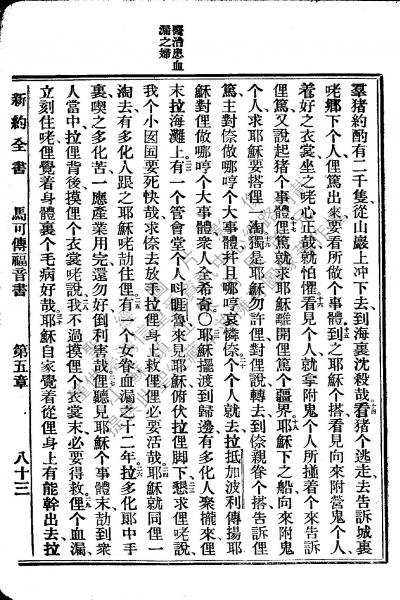 醫治患血
漏之婦
羣猪約酌有二千隻從山巖上冲下去到海裏沈殺哉看猪个逃走去告訴城裏
咾鄉下个人俚篤出來要看所做个事體到之耶穌个搭看見向來附營鬼个人
着好之衣裳坐之咾心正哉就怕懼看見个人就拿附鬼个人所撞着个來告訴
俚篤又說起猪个事體俚篤就求耶穌離開俚篤个疆界耶穌下之船向來附鬼
个人求耶穌要搭俚一淘獨是耶穌勿許俚對俚說轉去到倷親眷个搭告訴俚
篤主對倷做哪哼个大事體幷且哪哼哀憐倷个个人就去拉抵加波利傳揚耶
穌對俚做哪哼个大事體衆人全希奇〇耶穌擺渡到歸邊有多化人聚攏來俚
末拉海灘上有一个管會堂个人呌睚魯來見耶穌俯伏拉俚脚下懇求俚咾說
我个小囡囡要死快哉求倷去放手拉俚身上救俚俚必要活哉耶穌就同俚一
淘去有多化人跟之耶穌咾劼住俚有一个女眷血漏之十二年拉多化郞中手
裏喫之多化苦一應產業用完還勿好倒利害哉俚聽見耶穌个事體末劼到衆
人當中拉俚背後摸俚个衣裳咾說我不過摸俚个衣裳末必要得救俚个血漏
立刻住咾俚覺着身體裏个毛病好哉耶穌自家覺着從俚身上有能幹出去拉
新約全書 馬可傳福音書 第五章 八十三